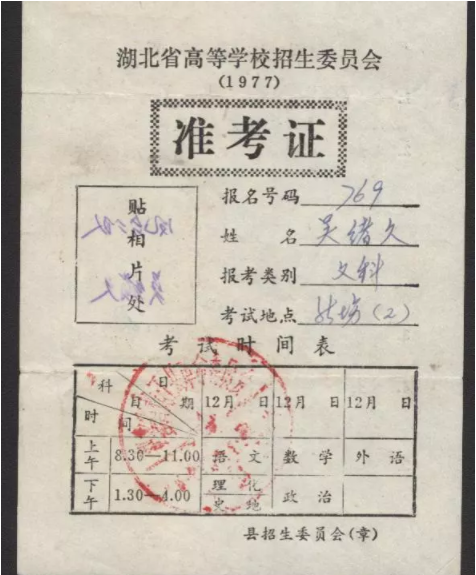 湖北省高等学校招生委员会
(1977)
准考证
贴相片处
报名号码 769
姓 名 吴绪久
报考类别 文科
考试地点 (2)
考试时间表
科 目 日 期 时 间 12月 日 12月 日 12月 日
上午 8.30—11.00 语 文 数 学 外 语
下午 1.30—4.00 理 化 史 地 政 治
县招生委员会(章)